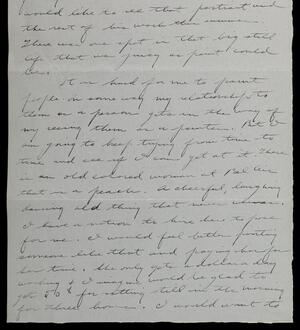 would like to see that portrait and
the rest of his work this summer.
There was one spot in that big still
life that was juicy as paint could
be.
It is hard for me to paint
people in some way my relationship to
them as a person gets in the way of
my seeing them as a painter. But I
am going to keep trying from time to
time and see if I can get at it. There
is an old colored woman at Bel Air
that is a peach. A cheerful, laughing
old thing that never
I have a notion to hire her to pose
for me. I would feel better painting
someone like that and paying her for
her time. She only gets a dollar a day
working & I imagine would be glad to
get 50¢ for sitting still in the morning
for three hours. I would want to